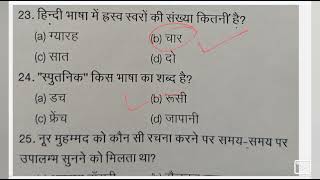 23. हिन्दी भाषा में ह्रस्व स्वरों की संख्या कितनीं है?
(a) ग्यारह (b) चार
(c) सात (d) दो
24. "स्पुतनिक" किस भाषा का शब्द है?
(a) डच (b) रूसी
(c) फ्रेंच (d) जापानी
25. नूर मुहम्मद को कौन सी रचना करने पर समय-समय पर
उपालम्भ सुनने को मिलता था?